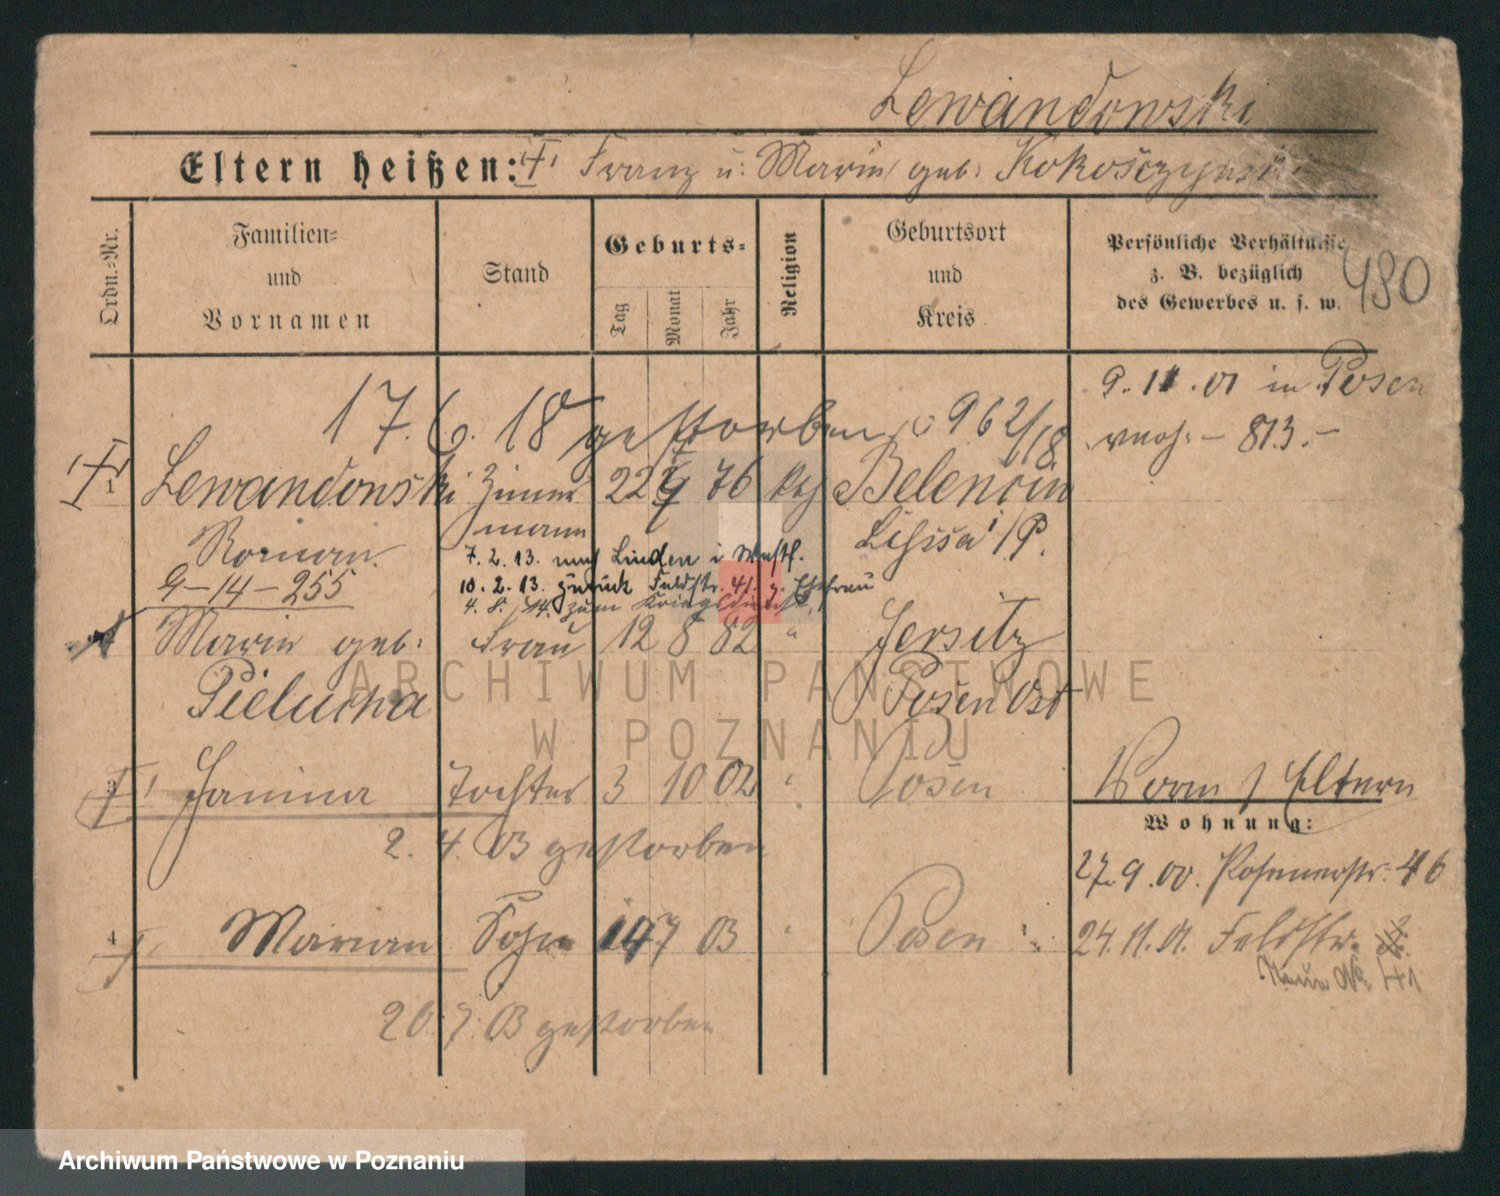 Lewandowski
Eltern heißen: Franz u: Maria geb: Kokosczynski
Ordn.-Nr.
Familien- und Vornamen
Stand
Geburts-
Tag
Monat
Jahr
Religion
Geburtsort und Kreis
Persönliche Verhältnisse z. B. bezüglich des Gewerbes u. s. w.
480
9. 11. 01 in Posen
17. 6. 18 gestorben 962/18
813.
1 Lewandowski Zimmer 22 76 kth Belencin
Roman mann Lissa i/P.
7. 2. 13. nach Linden i Westf.
9-14-255 10. 2. 13. zurück Feldstr. 41. z. Ehefrau
4. 8. 14. zum Kriegsdienst
2 Maria geb: Frau 12 8 82 " Jersitz
Pielucha Posen Ost
3 Janina Tochter 3 10 02 " Posen
2. 4. 03 gestorben
Eltern
Wohnung:
27. 9. 00. Posenerstr. 46
4 Marian Sohn 14 7 03 " Posen
24. 11. 01. Feldstr.
Neue No 41
20. 7. 03 gestorben
ARCHIWUM PAŃSTWOWE
W POZNANIU
Archiwum Państwowe w Poznaniu